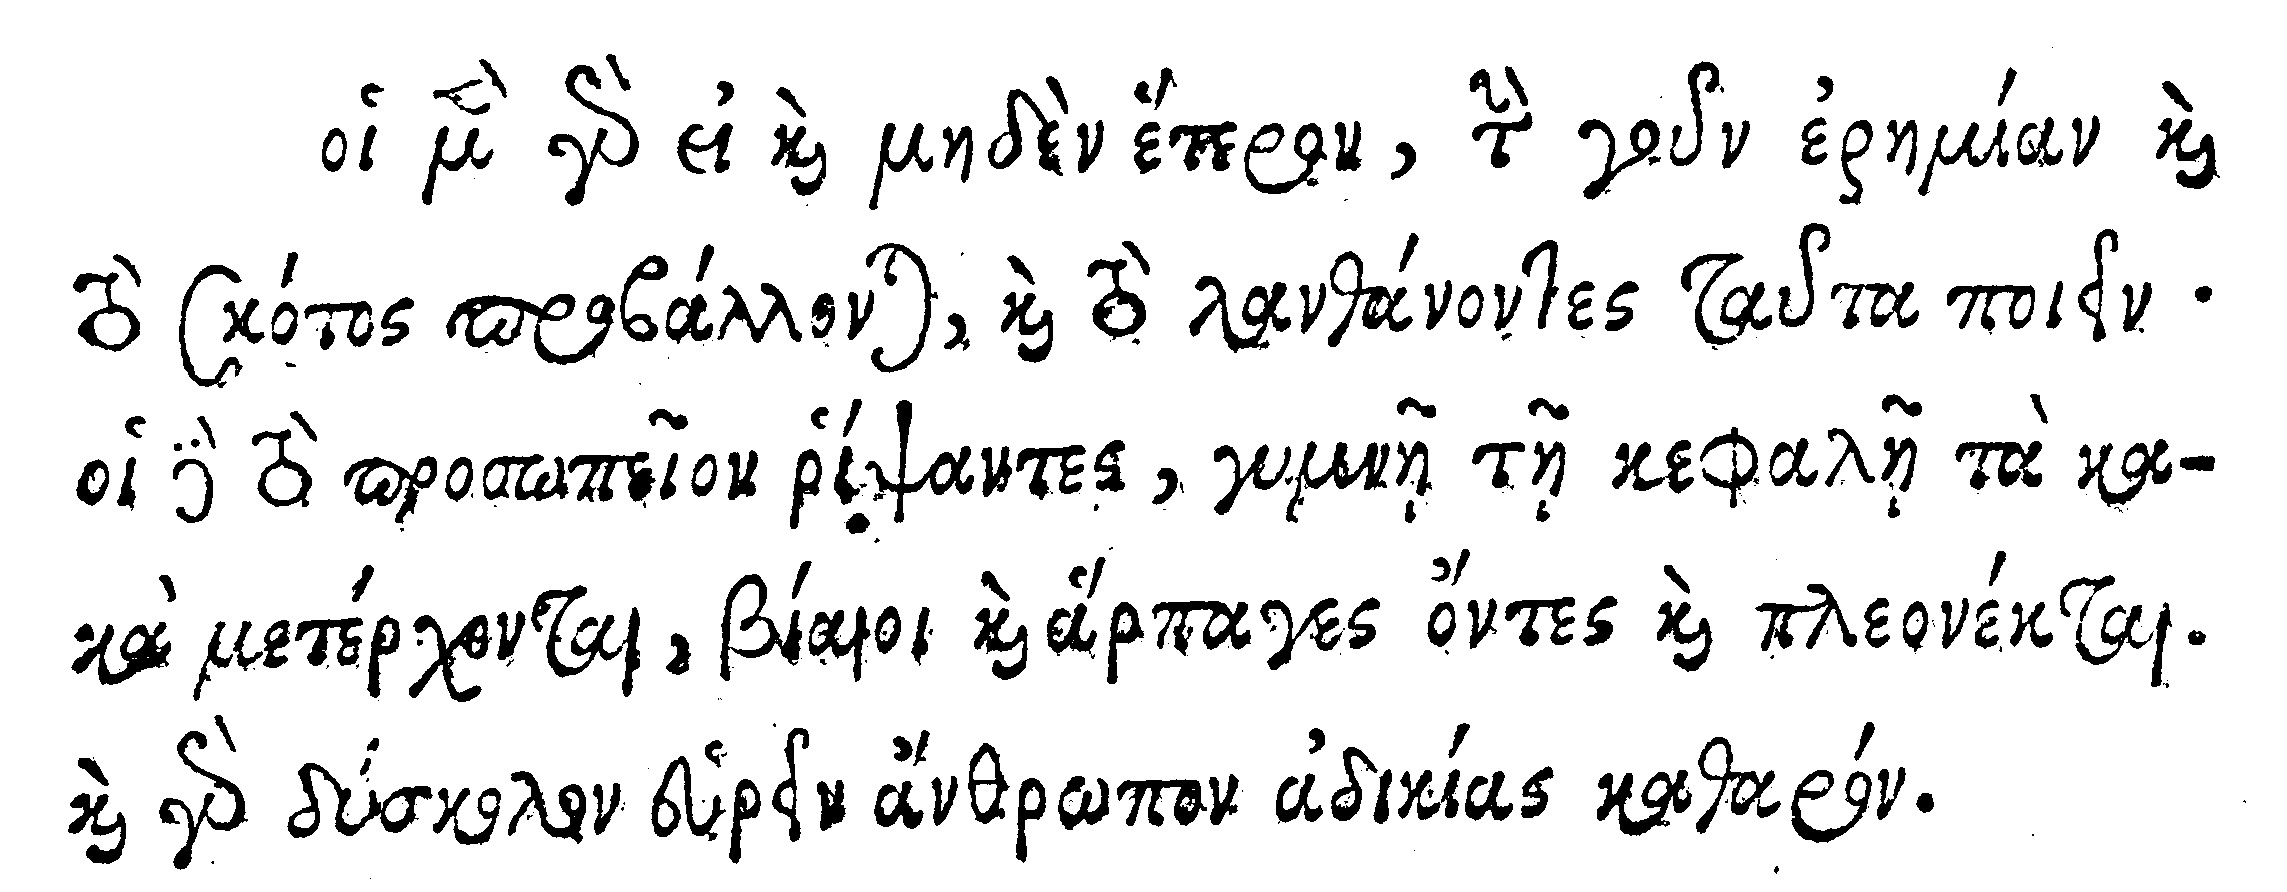 οἱ μὲν γὰρ εἰ καὶ μηδὲν ἕτερον, τὴν γοῦν ἐρημίαν καὶ
τὸ σκότος προβάλλονται, καὶ τὸ λανθάνοντες ταῦτα ποιεῖν·
οἱ δὲ τὸ προσωπεῖον ῥίψαντες, γυμνῇ τῇ κεφαλῇ τὰ κα-
κὰ μετέρχονται, βίαιοι καὶ ἅρπαγες ὄντες καὶ πλεονέκται.
καὶ γὰρ δύσκολον εὑρεῖν ἄνθρωπον ἀδικίας καθαρόν.